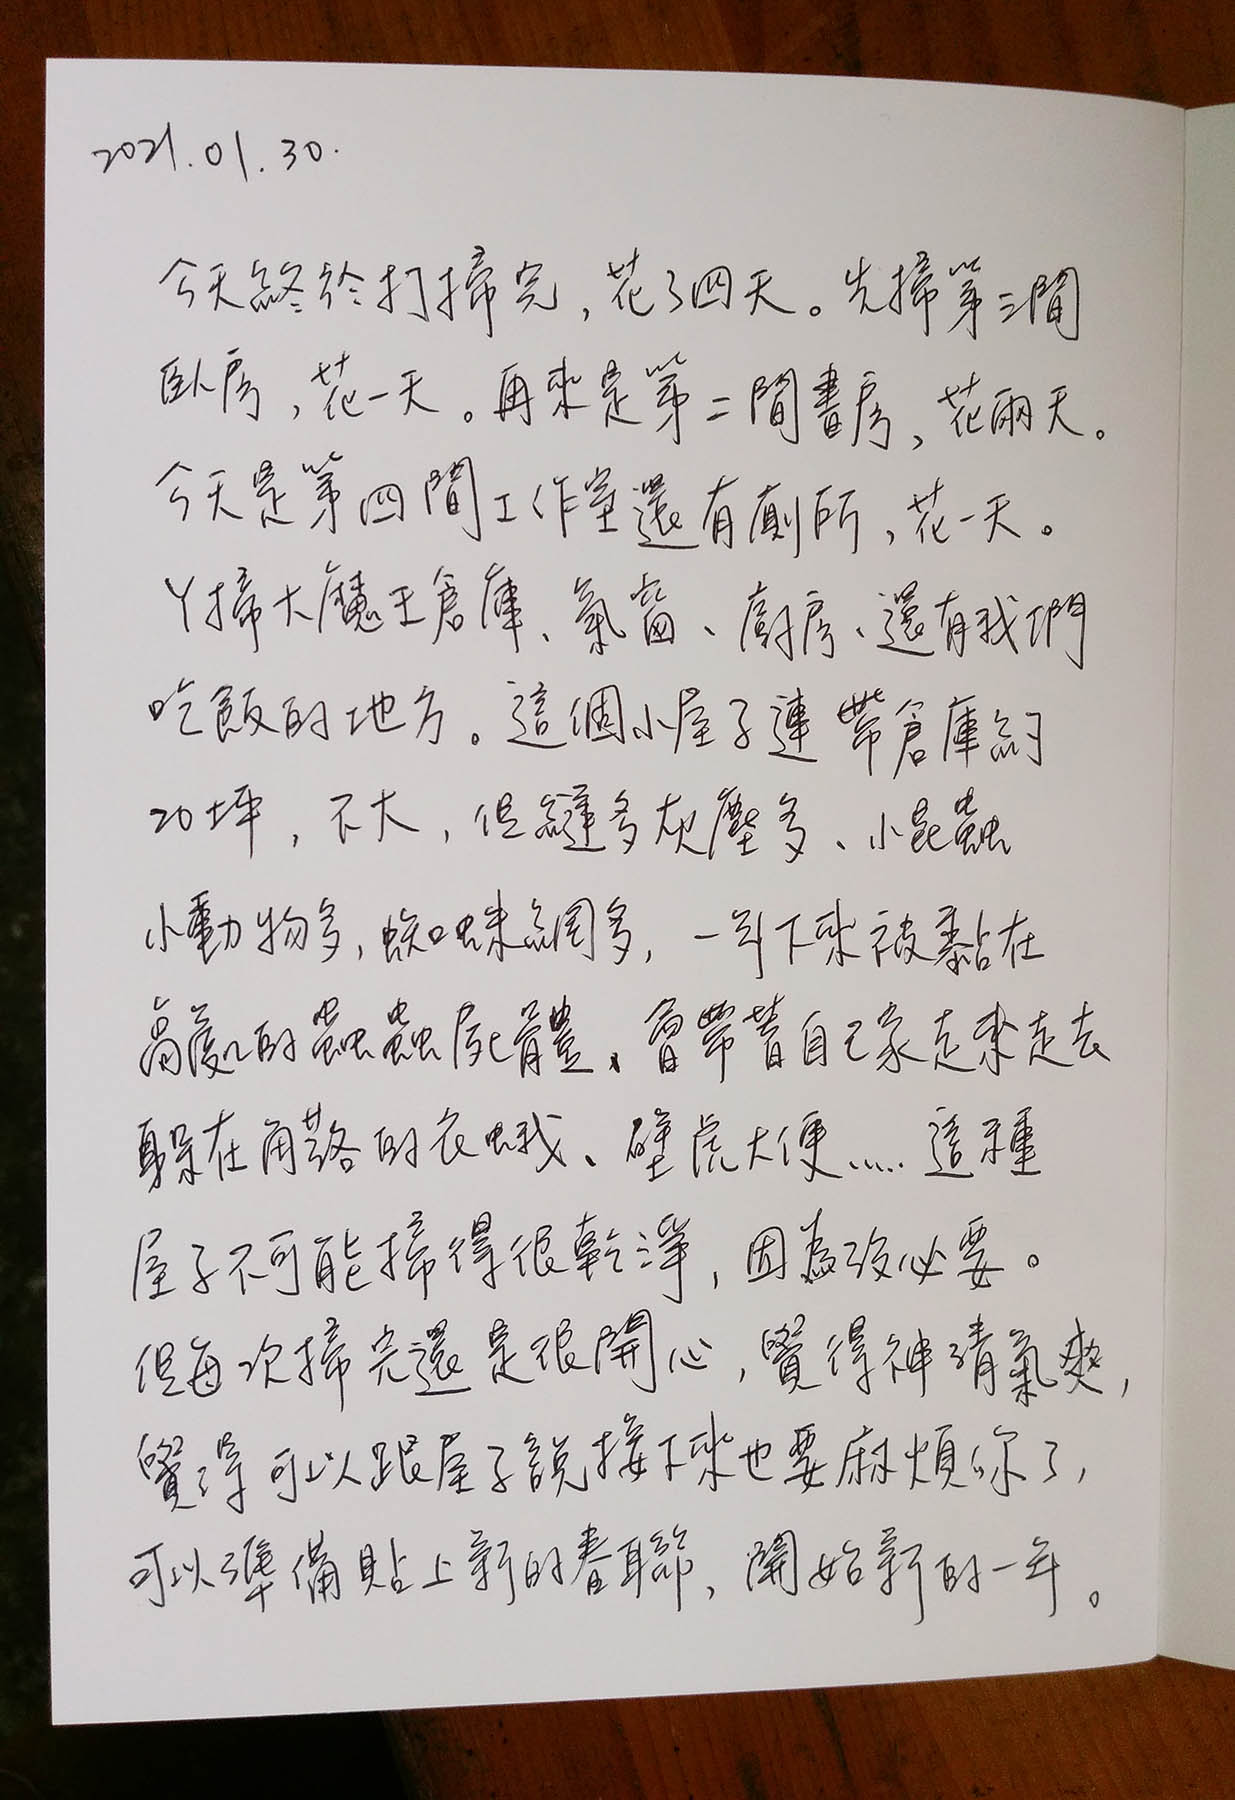 2021.01.30.
今天終於打掃完，花了四天。先掃第三間
臥房，花一天。再來是第二間書房，花兩天。
今天是第四間工作室還有廁所，花一天。
ㄚ掃大魔王倉庫、氣窗、廚房、還有我們
吃飯的地方。這個小屋子連帶倉庫約
20坪，不大，但縫多灰塵多、小昆蟲
小動物多，蜘蛛網多，一年下來被黏在
高處的蟲蟲屍體、會帶著自己家走來走去
躲在角落的衣蛾、壁虎大便……這種
屋子不可能掃得很乾淨，因為沒必要。
但每次掃完還是很開心，覺得神清氣爽，
覺得可以跟屋子說接下來也要麻煩你了，
可以準備貼上新的春聯，開始新的一年。